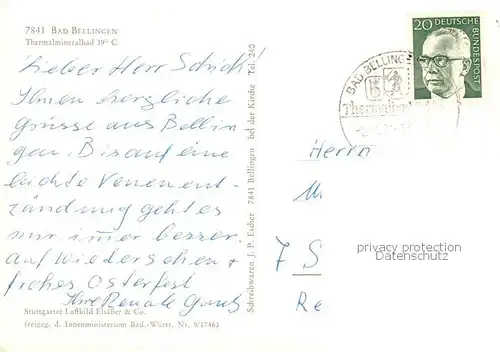 7841 BAD BELLINGEN
Thermalmineralbad 39° C
Lieber Herr
Ihnen herzliche
Grüsse aus Bellin
gen. Bis auf eine
leichte Venenent-
zündung geht es
mir immer besser.
Auf Wiedersehen +
frohes Osterfest
Ihre Renate
Stuttgarter Luftbild Elsäßer & Co.
freigeg. d. Innenministerium Bad.-Württ. Nr. 9/17463
Schreibwaren J. P. Escher 7841 Bellingen bei der Kirche Tel. 240
20 DEUTSCHE
BUNDESPOST
BAD BELLINGE
Herrn
7 S
Re
privacy protection
Datenschutz